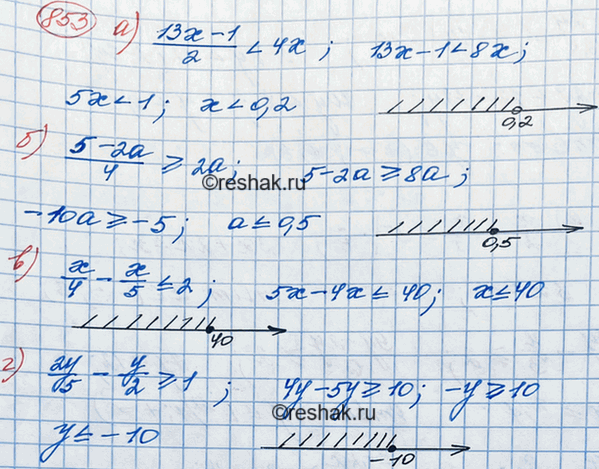 853 а) (13x-1)/2 < 4x ; 13x-1 < 8x ;
5x < 1 ; x < 0,2
0,2
б) (5-2a)/4 ⩾ 2a ; 5-2a ⩾ 8a ;
©reshak.ru
-10a ⩾ -5 ; a ≤ 0,5
0,5
в) x/4 - x/5 ≤ 2 ; 5x-4x ≤ 40 ; x ≤ 40
40
г) 2y/5 - y/2 ⩾ 1 ; 4y-5y ⩾ 10 ; -y ⩾ 10
©reshak.ru
y ≤ -10
-10